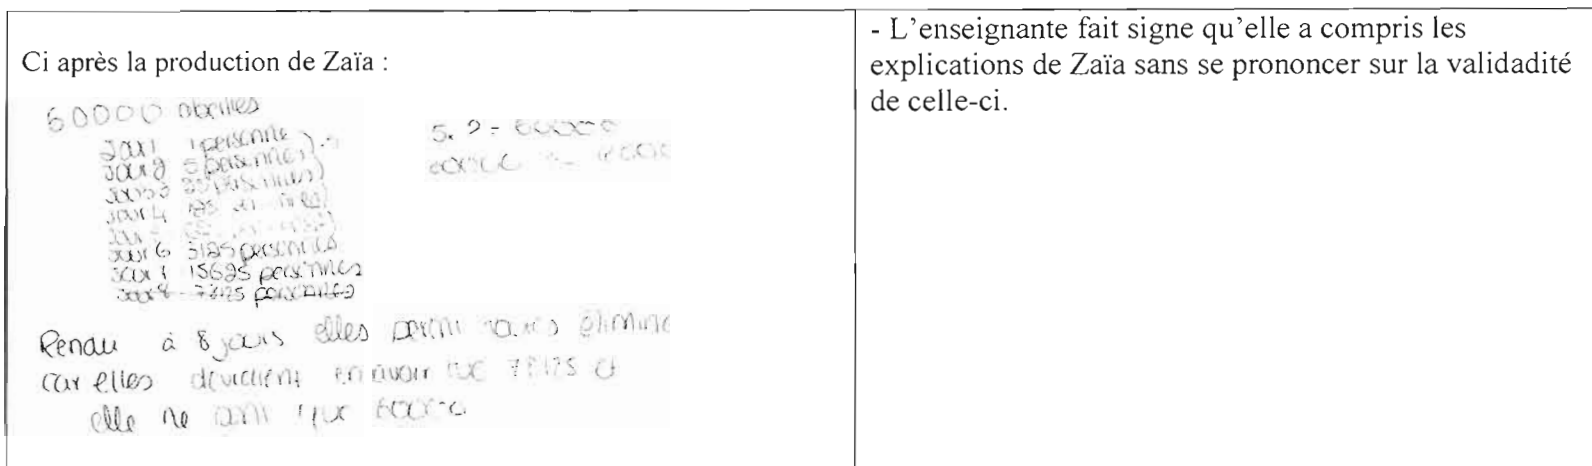 Ci après la production de Zaïa :
60000 abeilles
Jour 1 1 personne
Jour 2 5 personnes
Jour 3 25 personnes
Jour 4 125
Jour
Jour 6 3125 personnes
Jour 7 15625 personnes
Jour 8 78125 personnes
5. ? = 60000
60000
Rendu à 8 jours elles
car elles devraient en avoir tué 78125 et
elle ne sont que 60000
- L'enseignante fait signe qu'elle a compris les
explications de Zaïa sans se prononcer sur la validadité
de celle-ci.